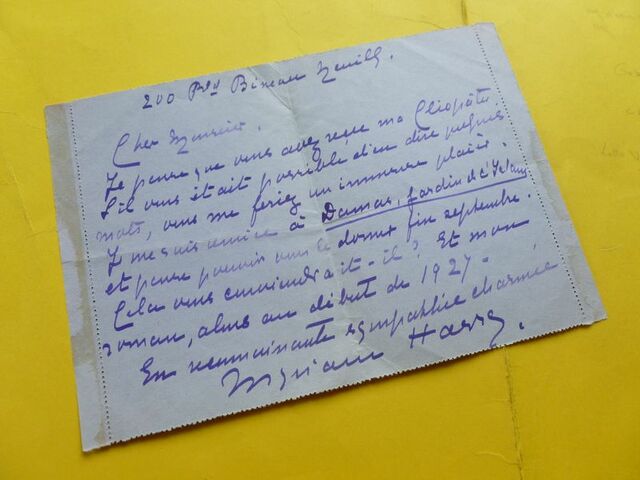 200 Bld Bineau Neuilly.
Cher Monsieur.
Je pense que vous avez reçu ma Cléopâtre
S'il vous était possible d'en dire quelques
mots, vous me feriez un immense plaisir.
Je me suis remise à Damas, Jardin de l'Islam
et pense pouvoir vous le donner fin septembre.
Cela vous conviendrait-il? Et mon
roman, alors au début de 1927.
En reconnaissante sympathie charmée
Myriam Harry.